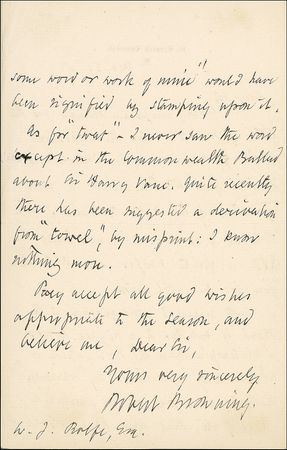 some word or work of mine" would have
been signified by stamping upon it.
As for "twat" – I never saw the word
except in the Commonwealth Ballad
about Sir Harry Vane. Quite recently
there has been suggested a derivation
from "towel", by misprint: I know
nothing more.
Pray accept all good wishes
appropriate to the season, and
believe me, Dear Sir,
Yours very sincerely
Robert Browning.
W. J. Rolfe, Esq.